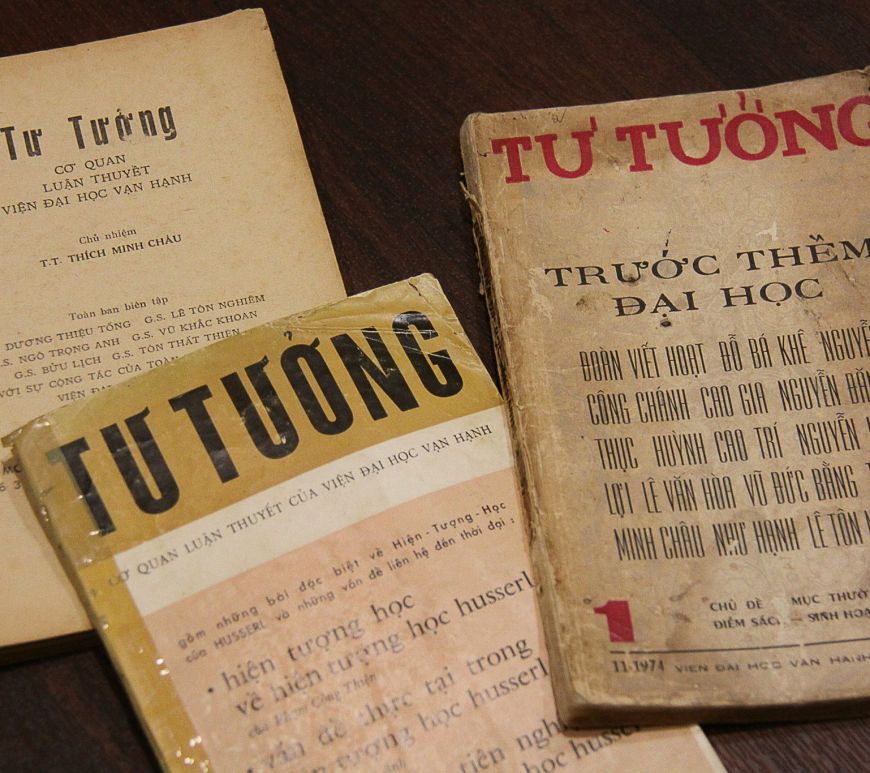 Tư Tưởng
CƠ QUAN
LUẬN THUYẾT
VIỆN ĐẠI HỌC VẠN HẠNH
Chủ nhiệm
T.T. THÍCH MINH CHÂU
Toàn ban biên tập
DƯƠNG THIỆU TỐNG G.S. LÊ TÔN NGHIÊM
G.S. NGÔ TRỌNG ANH G.S. VŨ KHẮC KHOAN
G.S. BỬU LỊCH G.S. TÔN THẤT THIỆN
VỚI SỰ CỘNG TÁC CỦA TOÀN
VIỆN
TƯ TƯỞNG
CƠ QUAN LUẬN THUYẾT CỦA VIỆN ĐẠI HỌC VẠN HẠNH
gồm những bài đặc biệt về Hiện-Tượng-Học
của HUSSERL và những vấn đề liên hệ đến thời đại :
• hiện tượng học
về hiện tượng học husserl
của Phạm Công Thiện
• vấn đề thực tại trong
hiện tượng học husserl
tiên
học husserl
TƯ TƯỞNG
TRƯỚC THỀM
ĐẠI HỌC
ĐOÀN VIẾT HOẠT ĐỖ BÁ KHÊ NGUYỄN
CÔNG CHÁNH CAO GIA NGUYỄN ĐĂNG
THỤC HUỲNH CAO TRÍ NGUYỄN
LỢI LÊ VĂN HÒA VŨ ĐỨC BẰNG
MINH CHÂU NHƯ HẠNH LÊ TÔN
1
CHỦ ĐỀ MỤC THƯỜNG
ĐIỂM SÁCH — SINH HOẠT
11-1974 VIỆN ĐẠI HỌC VẠN HẠNH